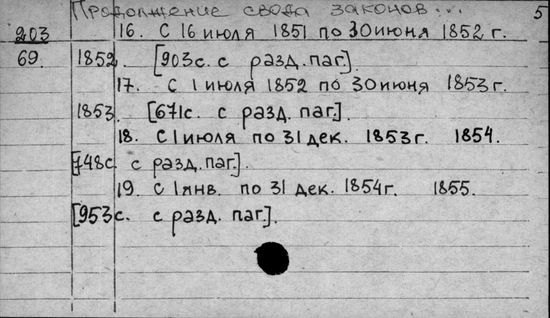 Продолжение свода законов... 5
203 16. С 16 июля 1851 по 30 июня 1852 г.
69. 1852. [903 с. с разд. паг.]
17. С 1 июля 1852 по 30 июня 1853 г.
1853. [671с. с разд. паг.].
18. С 1 июля по 31 дек. 1853 г. 1854.
[748с. с разд. паг.].
19. С 1 янв. по 31 дек. 1854 г. 1855.
[953 с. с разд. паг.].